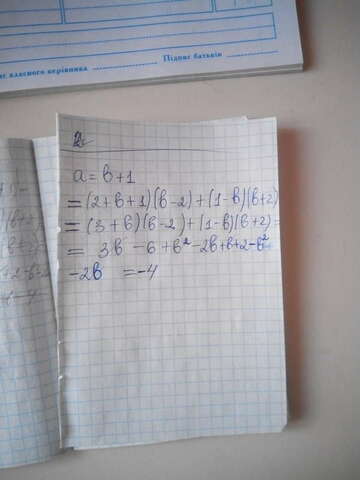 Підпис батьків
ласного керівника
2
a = b+1
=(2+b+1)(b-2)+(1-b)(b+2)
=(3+b)(b-2)+(1-b)(b+2)=
= 3b -6+b²-2b+b+2-b²
-2b =-4